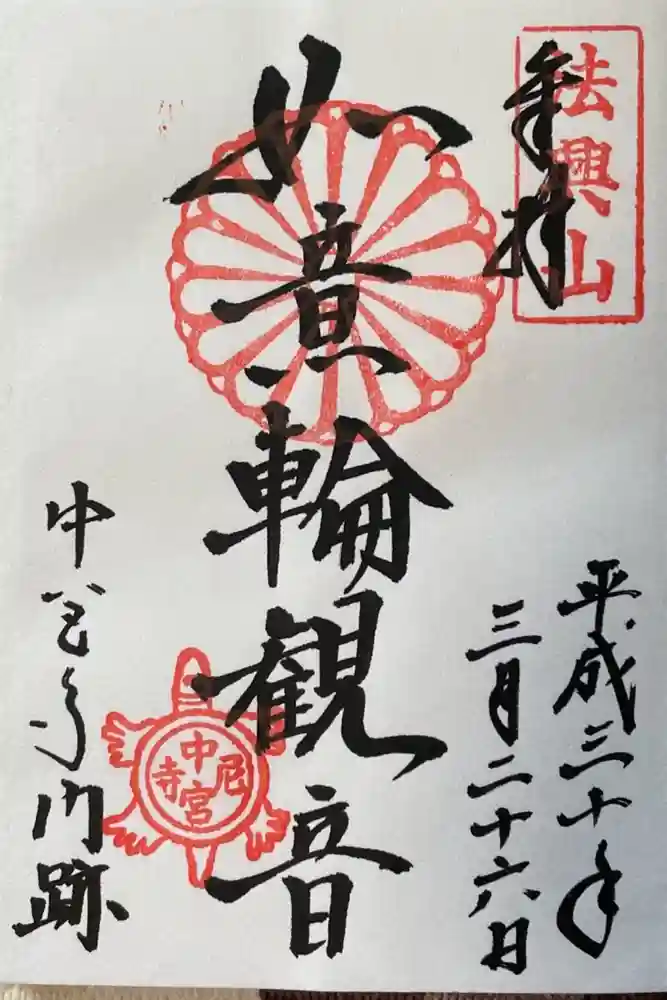 奉拝
法興山
平成三十年
三月二十六日
如意輪観音
中宮寺門跡
中宮尼寺